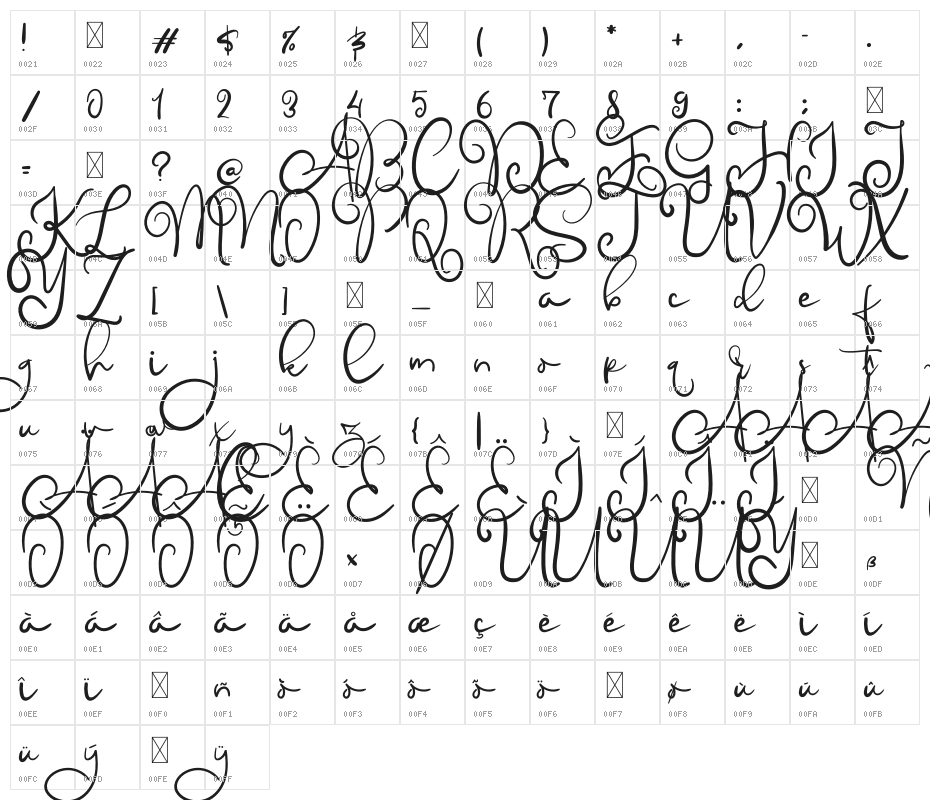 ! # $ % & ( ) * + , - .
0021 0022 0023 0024 0025 0026 0027 0028 0029 002A 002B 002C 002D 002E
/ 0 1 2 3 4 5 6 7 8 9 : ;
002F 0030 0031 0032 0033 0034 0035 0036 0037 0038 0039 003A 003B 003C
= ? @ A B C D E F G H I J
003D 003E 003F 0040 0041 0042 0043 0044 0045 0046 0047 0048 0049 004A
K L M N O P Q R S T U V W X
004B 004C 004D 004E 004F 0050 0051 0052 0053 0054 0055 0056 0057 0058
Y Z [ \ ] _ a b c d e f
0059 005A 005B 005C 005D 005E 005F 0060 0061 0062 0063 0064 0065 0066
g h i j k l m n o p q r s t
0067 0068 0069 006A 006B 006C 006D 006E 006F 0070 0071 0072 0073 0074
u v w x y z { | } À Á Â
0075 0076 0077 0078 0079 007A 007B 007C 007D 007E
Ã Ä Å Æ Ç È É Ê Ë Ì Í Î Ï Ñ
00D0 00D1
Ò Ó Ô Õ Ö × Ø Ù Ú Û Ü Ý ß
00D7 00D9 00DB 00DE 00DF
à á â ã ä å æ ç è é ê ë ì í
00E0 00E1 00E2 00E3 00E4 00E5 00E6 00E7 00E8 00E9 00EA 00EB 00EC 00ED
î ï ñ ò ó ô õ ö ø ù ú û
00EE 00EF 00F0 00F1 00F2 00F3 00F4 00F5 00F6 00F7 00F8 00F9 00FA 00FB
ü ý ÿ
00FC 00FD 00FE 00FF